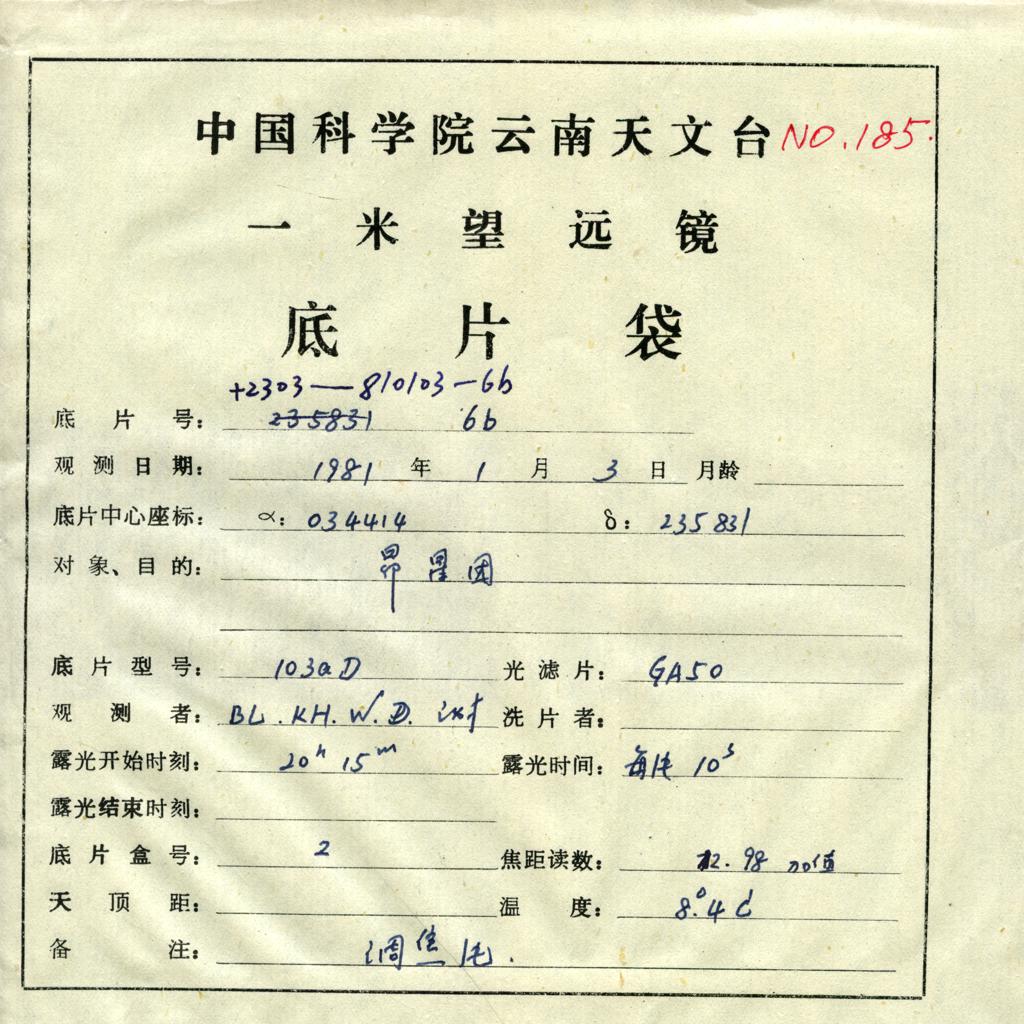 中国科学院云南天文台 NO.185.
一米望远镜
底片袋
+2303—810103-6b
底片号： 235831 6b
观测日期： 1981 年 1 月 3 日 月龄
底片中心座标： α： 034414 δ： 235831
对象、目的： 昴星团
底片型号： 103aD 光滤片： GA50
观测者： BL.KH.W.D. 洗片者：
露光开始时刻： 20h 15m 露光时间： 10s
露光结束时刻：
底片盒号： 2 焦距读数： 12.98
天顶距： 温度： 8°.4C
备注： 调焦